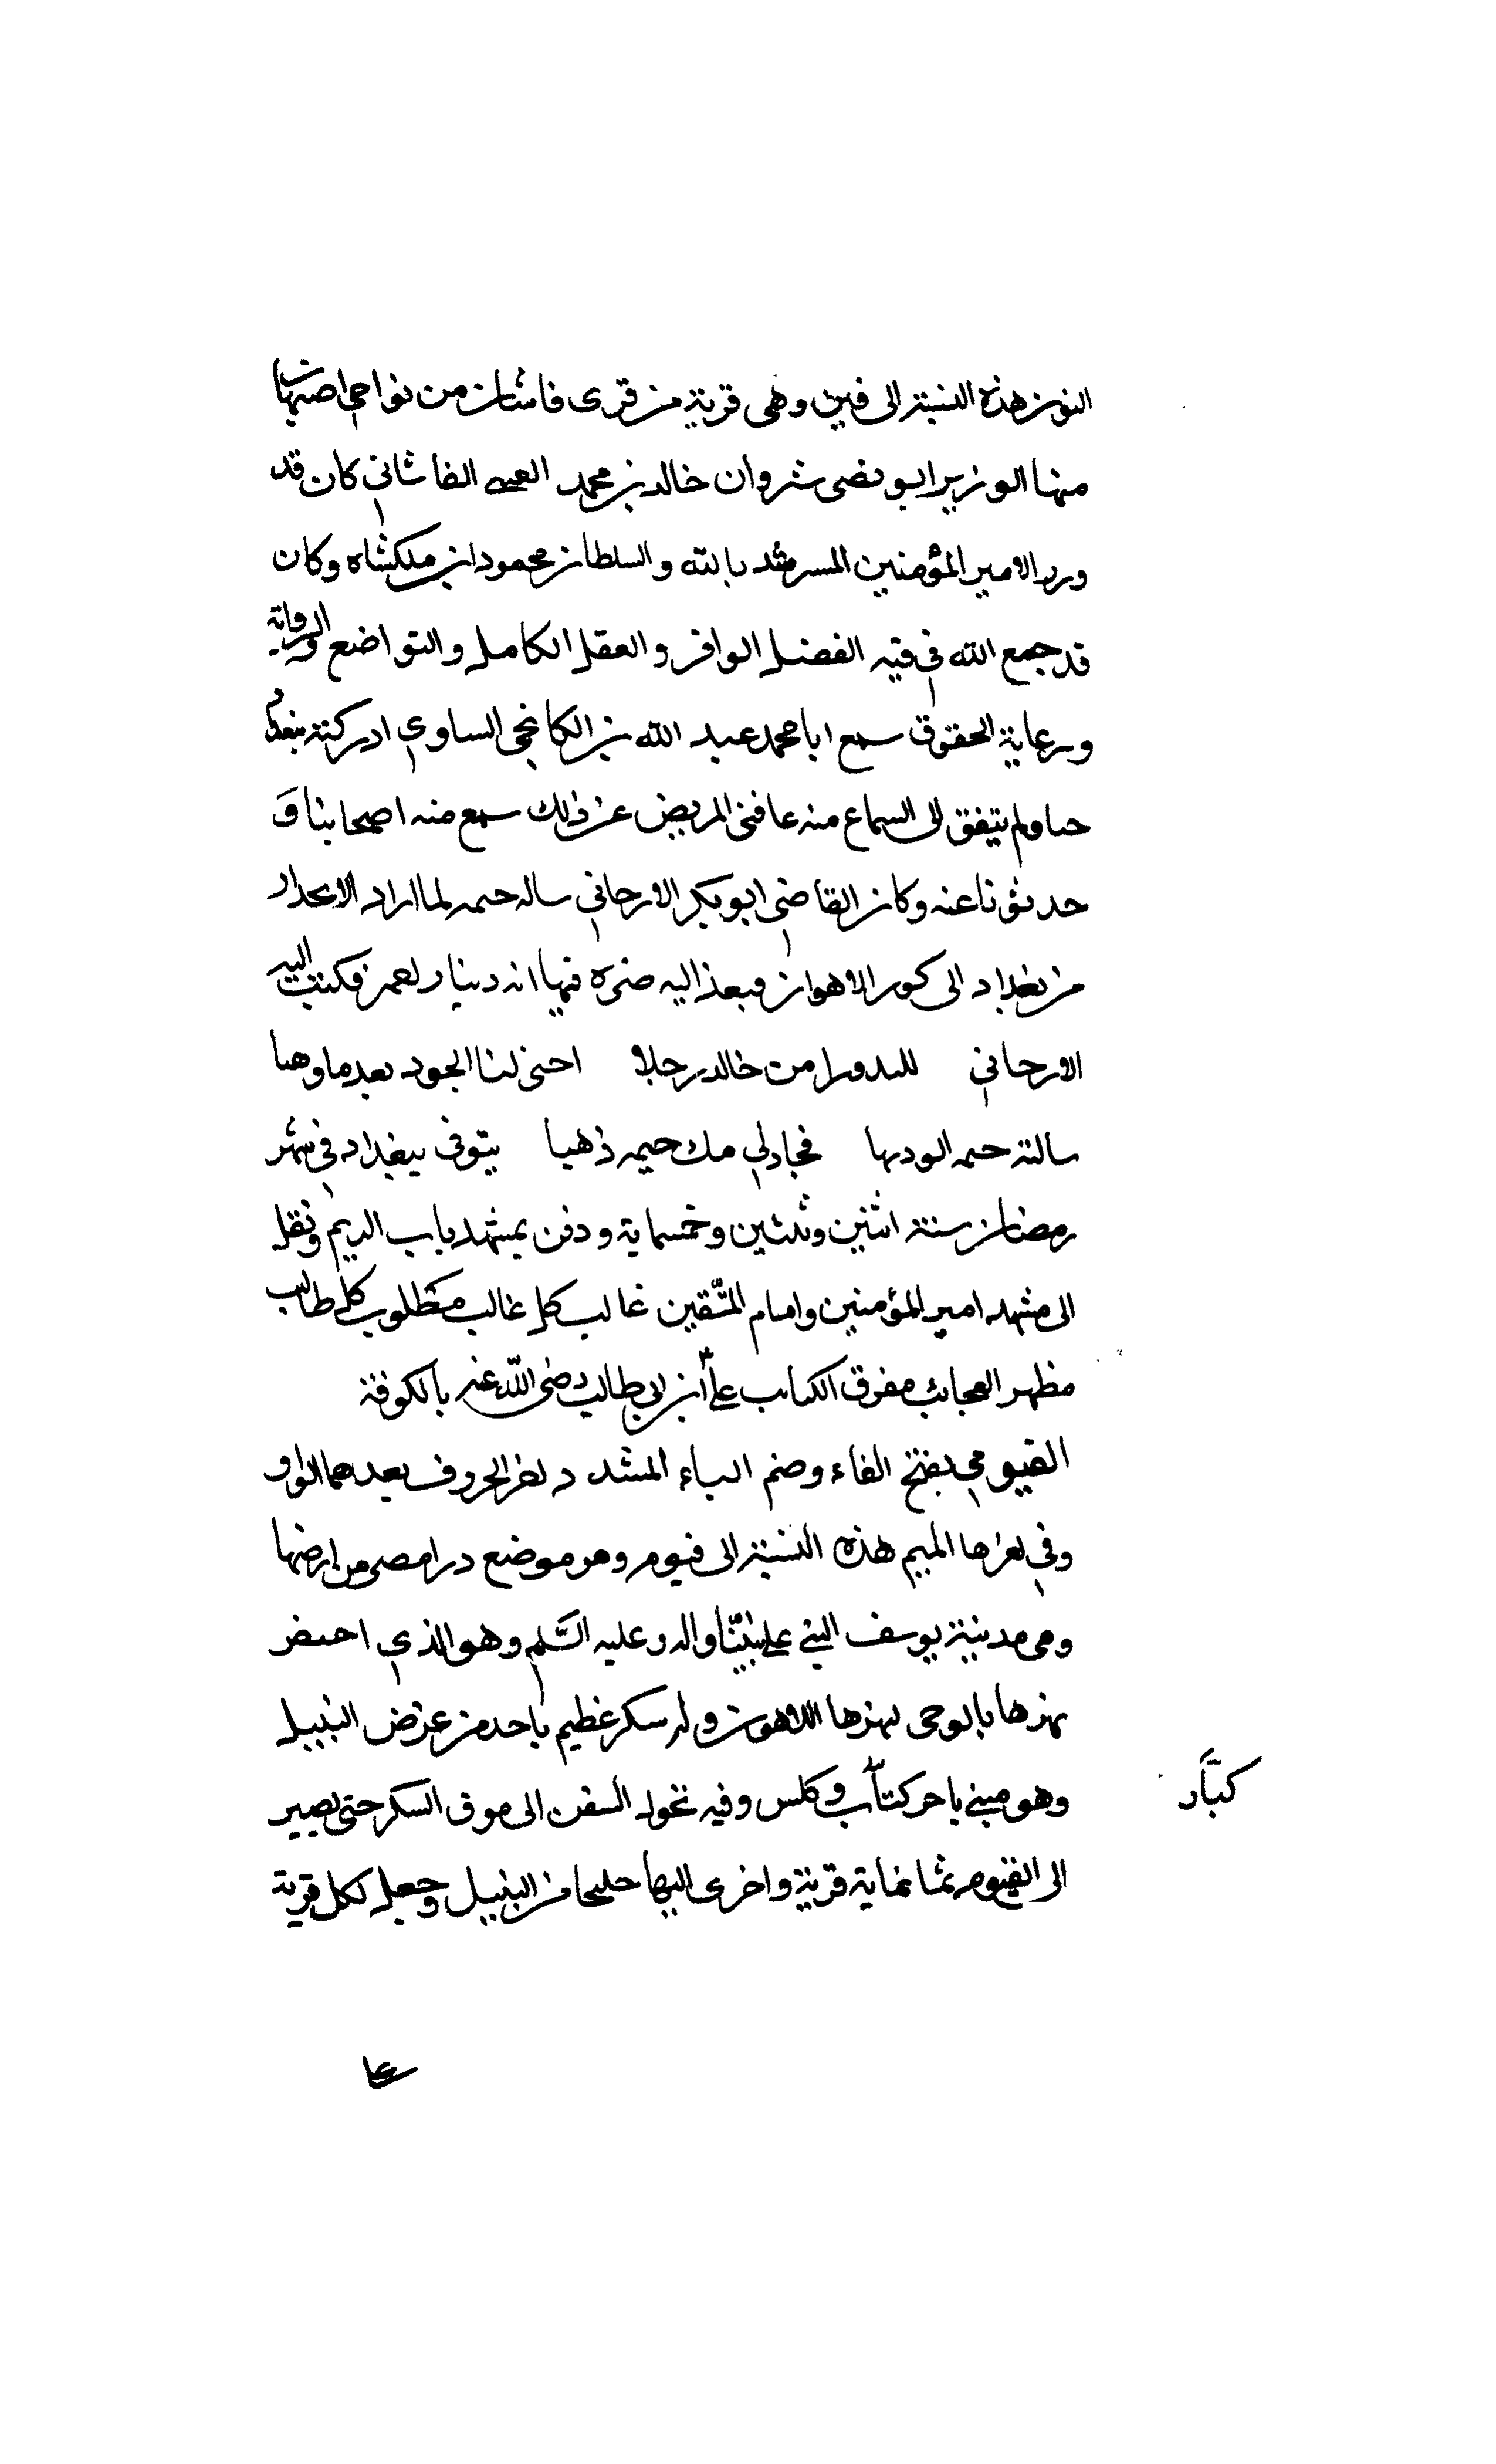 النون هذه النسبة الى فين وهى قرية من قرى قاشان من نواحى اصبهان
منها الوزير ابو نصر شروان خالد بن محمد الفاشانى كان قد
وزر الامير المؤمنين المسرشد بالله والسلطان محمود ابن ملكشاه وكان
قد جمع الله فى فيه الفضل الوافر والعقل الكامل والتواضع والرواية
ورعاية الحقوق سمع ابا محمد عبد الله بن الكامخى الساوى ادركته ببغداد
حيا ولم يتفق لى السماع منه عافنى المريض عن ذلك سمع منه اصحابنا و
حدثونا عنه وكان القاضى ابو بكر الارجانى ساله خيمه لما اراد الانحدار
من بغداد الى كور الاهواز فبعذ اليه صره فيها دينار فكتب اليه
الارجانى لله در ابن خالد رجلا احيى لنا الجود بعد ما ذهبا
سالته خيمه الوذ بها فجاد لى خيمه ذهبا يتوفى ببغداد فى شهر
رمضان سنة اثنين وثلثين وخمسماية ودفن بمشهد باب الديم ونقل
الى مشهد امير المؤمنين وامام المتّقين غالب كل غالب مطلوب كل طالب
مظهر العجائب مفرق الكتاب على ابن ابى طالب رضى الله عنه بالكوفة
الفيومى بفتح الفاء وضم الياء المشدد الحروف بعدهما الواو
وفى اخرها الميم هذه النسبة الى فيوم وهو موضع من ارضها
وهى مدينة يوسف النبى على نبيّنا واله وعليه السَّلم وهو الذى احتفر
نهرها بالوحى نهرها اللاهون وله سكر عظيم ياخذ من عرض النيل
وهو مبنى باحر كتاب وكلس وفيه تحول السفن الى فوق السكر حتى يصير
كبَّار
الى الفيوم ثمانماية قرية واخرى اليها خليجا من النيل وجعل لكل قرية